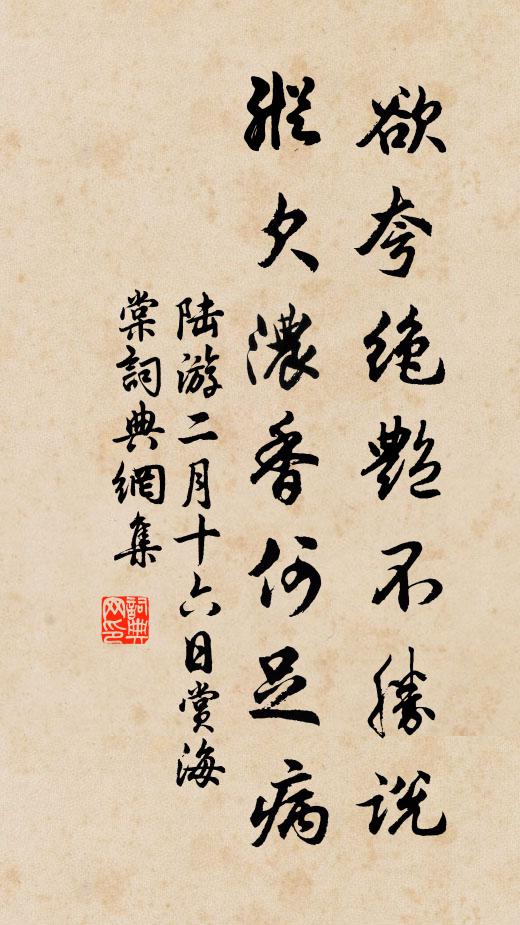 欲夸绝艳不胜说
纵欠濃香何足病
陆游二月十六日赏海
棠詞典網集
詞典网印